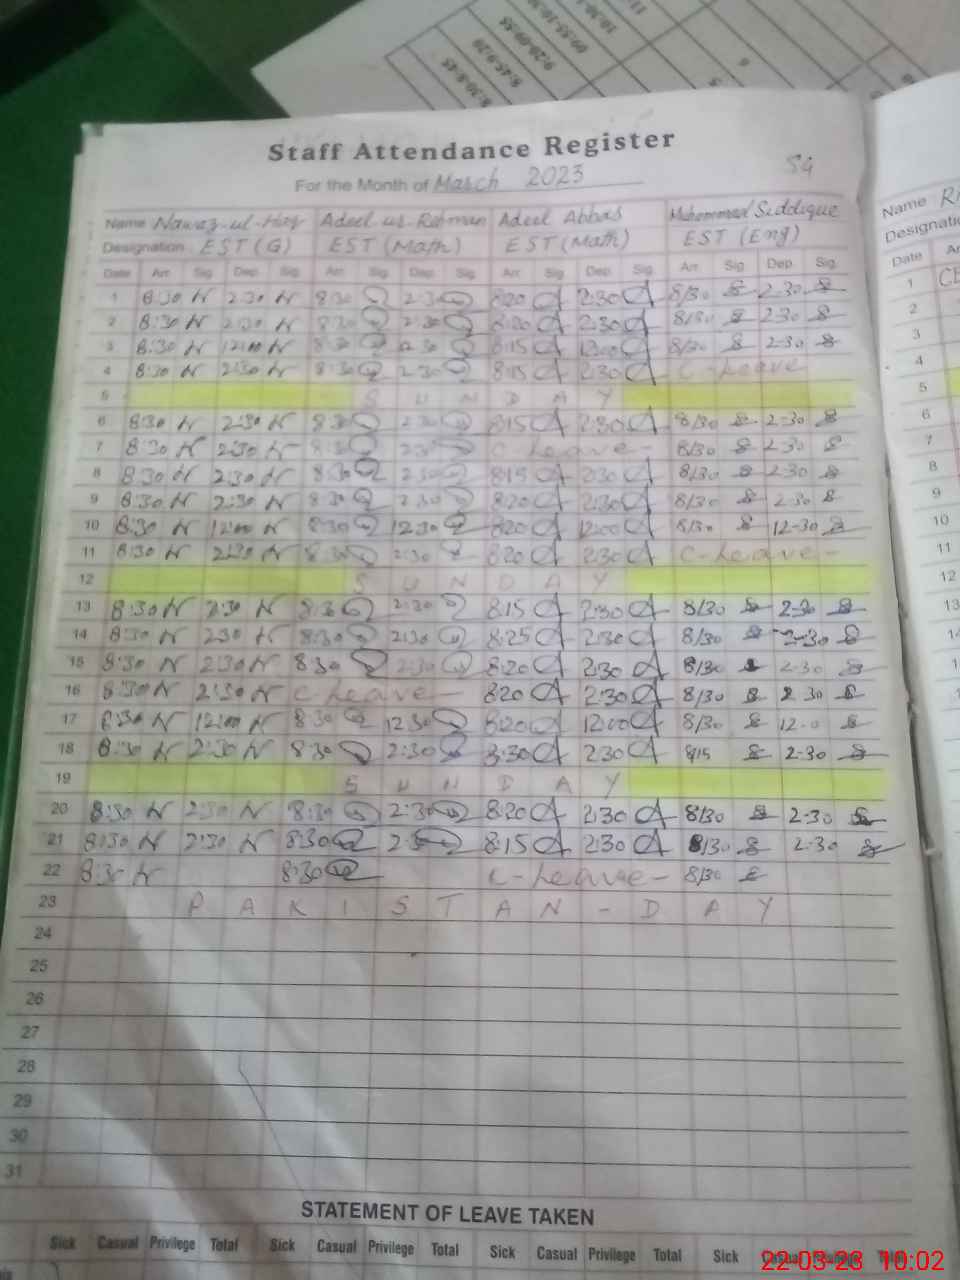 8:30-8:45
8:45-9:20
9:20-09:55
09:55-10:30
Staff Attendance Register
For the Month of March 2023
54
Name Nawaz-ul-Haq Adeel ur Rehman Adeel Abbas Muhammad Siddique
Designation EST (G) EST (Math) EST (Math) EST (Eng)
Date Arr. Sig. Dep. Sig. Arr. Sig. Dep. Sig. Arr. Sig. Dep. Sig. Arr. Sig. Dep. Sig.
1 8:30 N 2:30 N 8:30 2:30 8:20 A 2:30 A 8/30 2-30
2 8:30 N 2:30 N 8:30 2:30 8:20 A 2:30 A 8/30 2-30
3 8:30 N 12:00 N 8:30 12:30 8:15 A 12:00 A 8/30 2-30
4 8:30 N 2:30 N 8:30 2:30 8:15 A 2:30 A C-Leave
5 SUNDAY
6 8:30 N 2:30 N 8:30 2:30 8:15 A 2:30 A 8/30 2-30
7 8:30 N 2:30 N 8:30 2:30 C-Leave- 8/30 2-30
8 8:30 N 2:30 N 8:30 2:30 8:15 A 2:30 A 8/30 2-30
9 8:30 N 2:30 N 8:30 2:30 8:20 A 2:30 A 8/30 2-30
10 8:30 N 12:00 N 8:30 12:30 8:20 A 12:00 A 8/30 12-30
11 8:30 N 2:30 N 8:30 2:30 8:20 A 2:30 A C-Leave-
12 SUNDAY
13 8:30 N 2:30 N 8:30 2:30 8:15 A 2:30 A 8/30 2-30
14 8:30 N 2:30 N 8:30 2:30 8:25 A 2:30 A 8/30 2-30
15 8:30 N 2:30 N 8:30 2:30 8:20 A 2:30 A 8/30 2-30
16 8:30 N 2:30 N C-Leave- 8:20 A 2:30 A 8/30 2-30
17 8:30 N 12:00 N 8:30 12:30 8:20 A 12:00 A 8/30 12-0
18 8:30 N 2:30 N 8:30 2:30 8:30 A 2:30 A 8/15 2-30
19 SUNDAY
20 8:30 N 2:30 N 8:30 2:30 8:20 A 2:30 A 8/30 2-30
21 8:30 N 2:30 N 8:30 2:30 8:15 A 2:30 A 8/30 2-30
22 8:30 N 8:30 C-Leave- 8/30
23 PAKISTAN-DAY
24
25
26
27
28
29
30
31
STATEMENT OF LEAVE TAKEN
Sick Casual Privilege Total Sick Casual Privilege Total Sick Casual Privilege Total Sick Casual Privilege Total
Name
Designation
Date
1
2
3
4
5
6
7
8
9
10
11
12
13
22-03-23 10:02